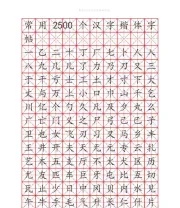 常用2500个汉字楷体字
帖
一乙二十丁厂七卜人入
八九几儿了力乃刀又三
于干亏士工土才寸下大
丈与万上小口巾山千乞
川亿个勺久凡及夕丸么
广亡门义之尸弓己已子
卫也女飞刃习叉马乡丰
王井开夫天无元专云扎
艺木五支厅不太犬区历
尤友匹车巨牙屯比互切
瓦止少日中冈贝内水见